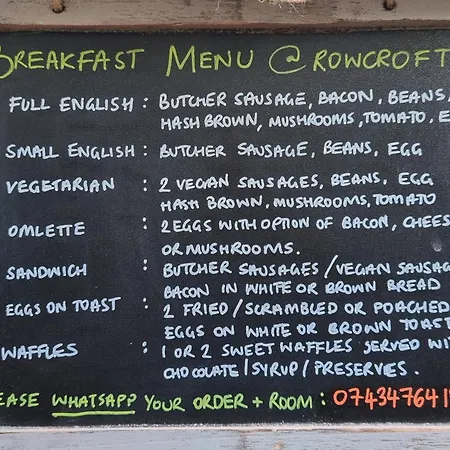 BREAKFAST MENU @ ROWCROFT
FULL ENGLISH : BUTCHER SAUSAGE, BACON, BEANS,
HASH BROWN, MUSHROOMS, TOMATO, E
SMALL ENGLISH : BUTCHER SAUSAGE, BEANS, EGG
VEGETARIAN : 2 VEGAN SAUSAGES, BEANS, EGG
HASH BROWN, MUSHROOMS, TOMATO
OMLETTE : 2 EGGS WITH OPTION OF BACON, CHEES
OR MUSHROOMS.
SANDWICH : BUTCHER SAUSAGES / VEGAN SAUSAG
BACON IN WHITE OR BROWN BREAD
EGGS ON TOAST : 2 FRIED / SCRAMBLED OR POACHED
EGGS ON WHITE OR BROWN TOAST
WAFFLES : 1 OR 2 SWEET WAFFLES SERVED WI
CHOCOLATE / SYRUP / PRESERVES.
EASE WHATSAPP YOUR ORDER + ROOM : 074347641